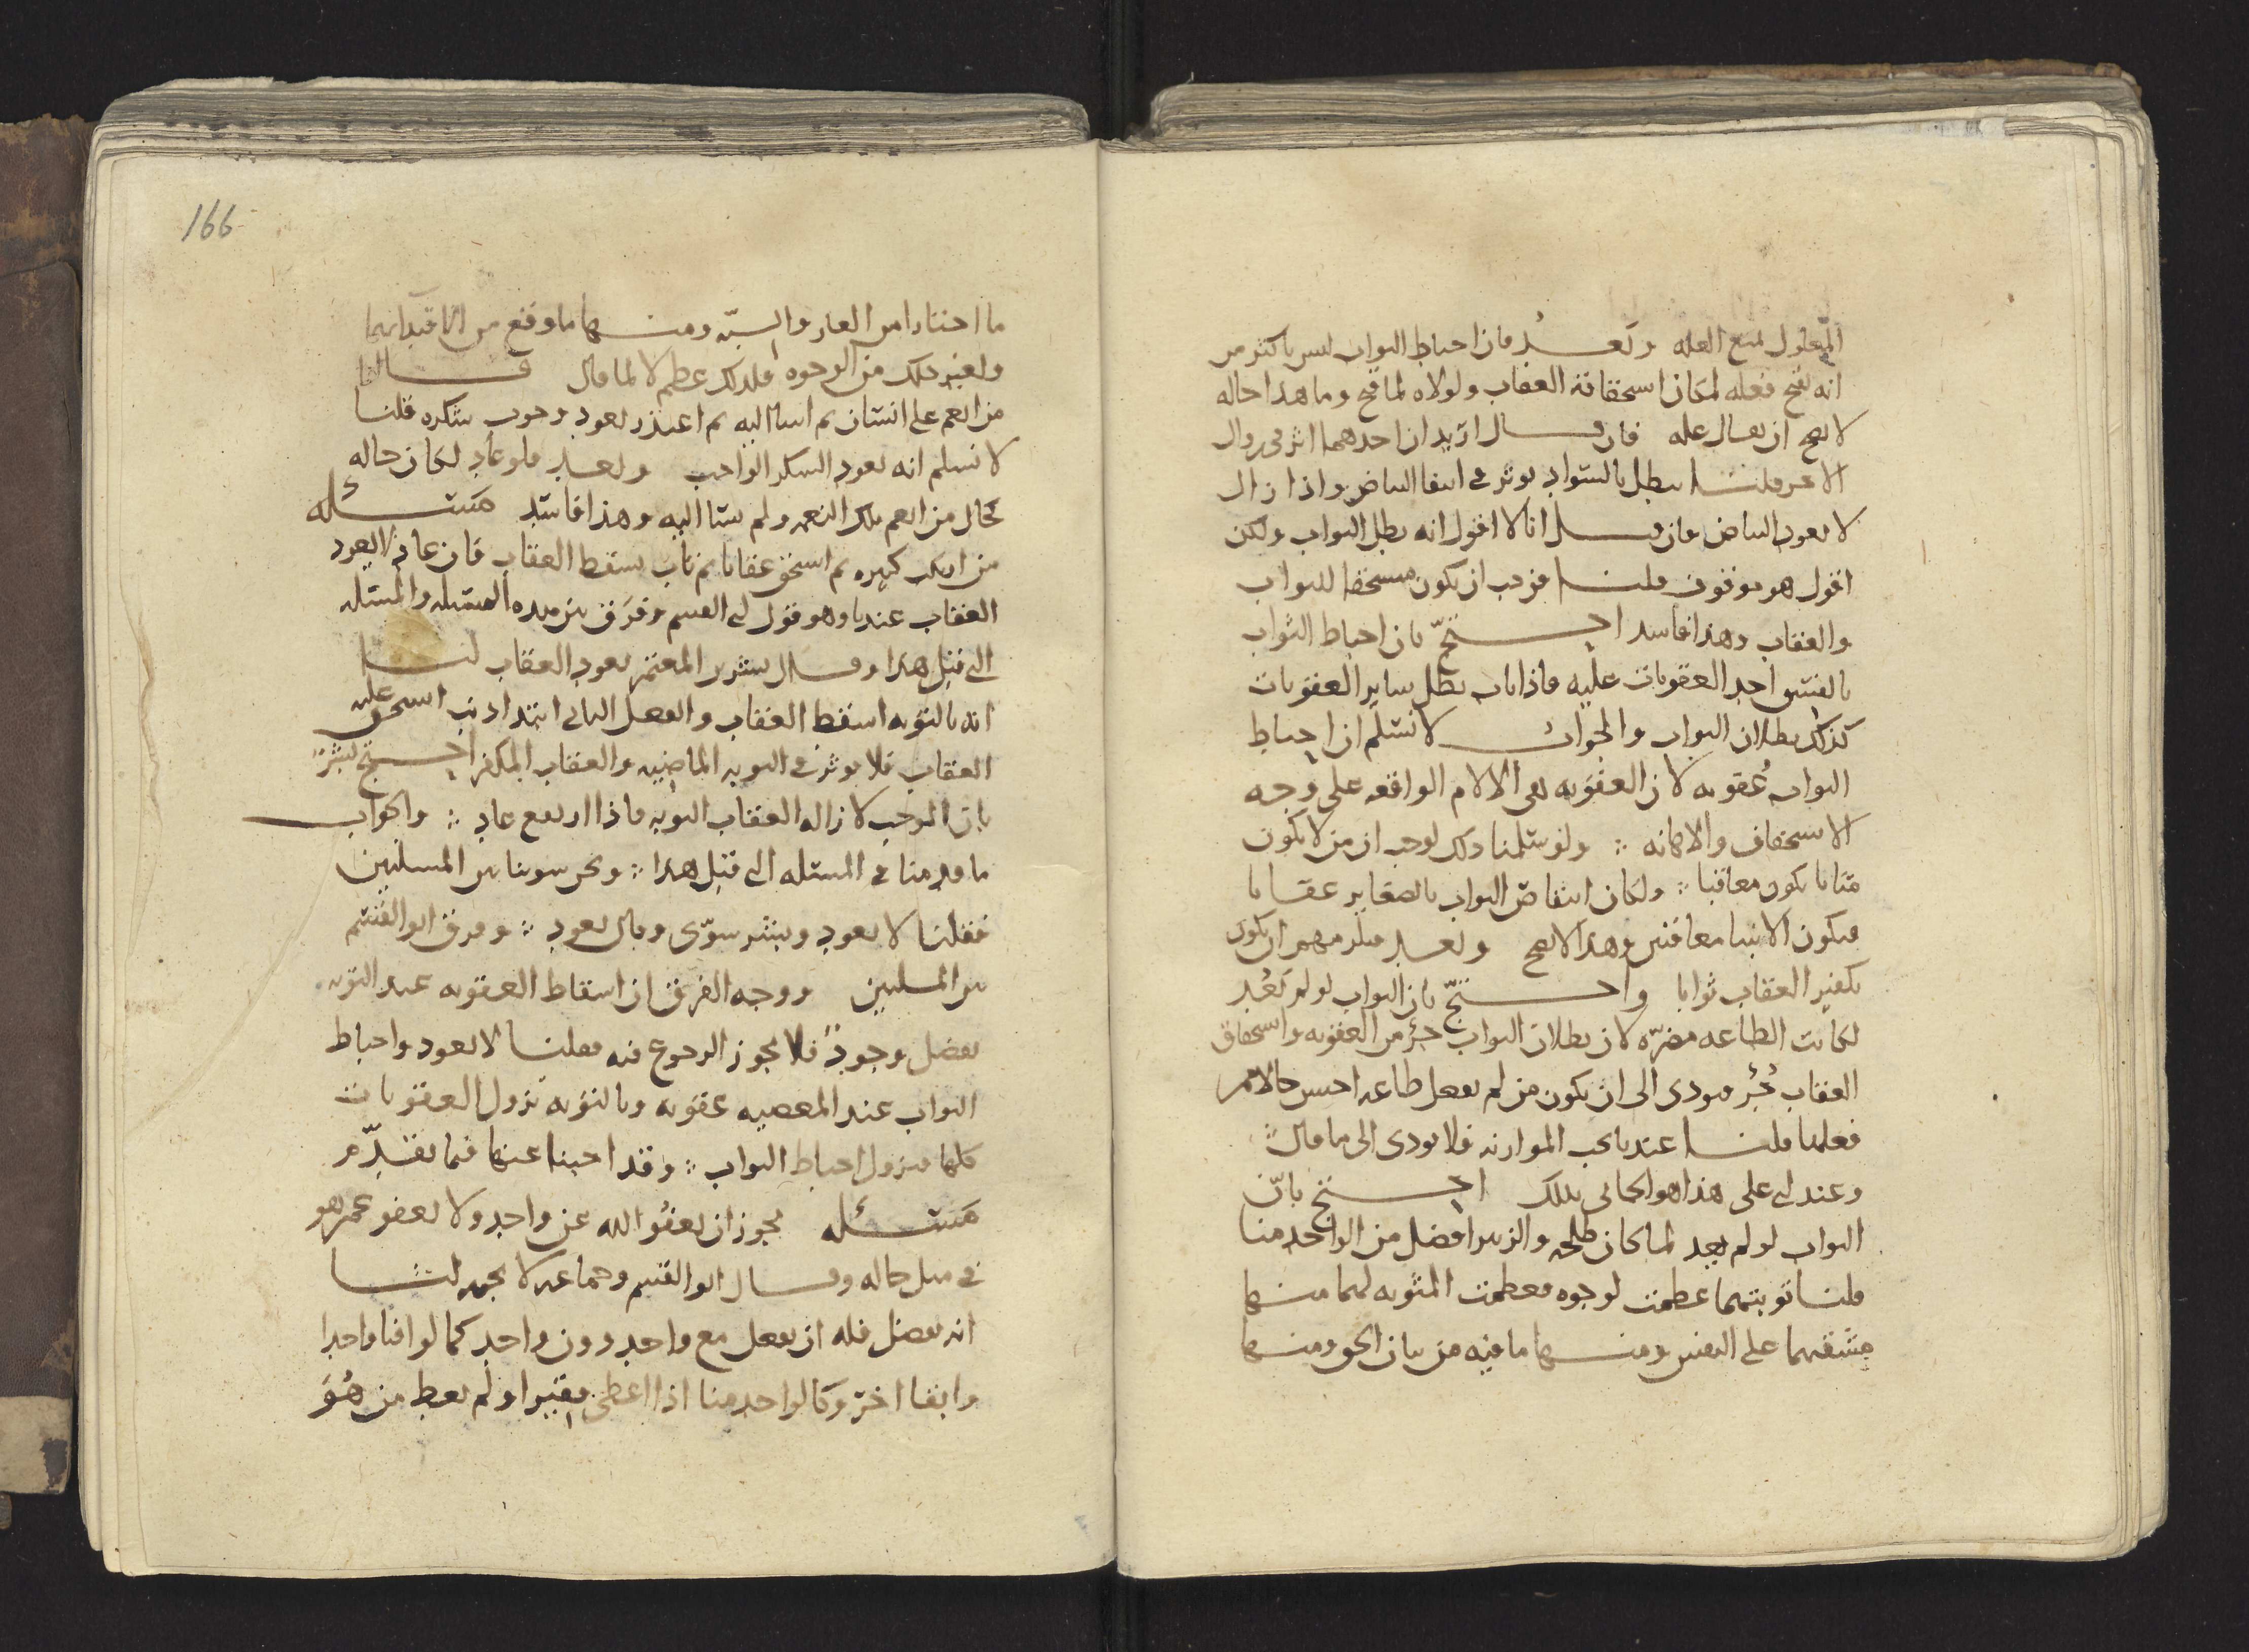 المعلول لمنع العله وبعد فان احباط الثواب ليس باكثر من
انه يقبح فعله لمكان استحقاقه العقاب ولولاه لما قبح وما هذا حاله
لا يصح ان يقال عله فان قال اريد ان احدهما اثر في زوال
الاخر قلنا يبطل بالسواد يوثر في انتفا البياض واذا زال
لا يعود البياض فان قال انا لا اقول انه يطل الثواب ولكن
اقول هو موقوف قلنا فوجب ان يكون مستحقا للثواب
والعقاب وهذا فاسد احتج بان احباط الثواب
بالفسق احد العقوبات عليه فاذا تاب بطل ساير العقوبات
كذلك بطلان الثواب والجواب لا نسلم ان احباط
الثواب عُقوبه لان العقوبه هي الالام الواقعه على وجه
الاستخفاف والاهانه ولو سلمنا ذلك لوجب ان من لا يكون
مثابا يكون معاقبا ولكان انتقاص الثواب بالصغاير عقابا
فيكون الانبيا معاقبين وهذا لا يصح وبعد فيلزمهم ان يكون
تكفير العقاب ثوابا واحتج بان الثواب لو لم يَعُد
لكانت الطاعه مضرّه لان بطلان الثواب جزء من العقوبه واستحقاق
العقاب جُزء فيودى الى ان يكون من لم يفعل طاعه احسن حالا ممن
فعلها قلنا عندنا يجب الموازنه فلا يودى الى ما قال
وعند ابي على هذا هو الجاني بذلك احتج بانّ
الثواب لو لم يعد لما كان طلحه والزبير افضل من الواحد منا
قلنا توبتهما عظمت لوجوه فعظمت المثوبه لهما منها
مشقتهما على النفس ومنها ما فيه من بيان الحق ومنها
166
ما اختارا من العار والسبّه ومنها ما وقع من الاقتدا بهما
ولغير ذلك من الوجوه فلذلك عظم لا لما قال قالوا
من انعم على انسان ثم اسا اليه ثم اعتذر يعود وجوب شكره قلنا
لا نسلم انه يعود الشكر الواجب وبعد فلو عاد لكان حاله
كحال من انعم تلك النعمه ولم يسا اليه وهذا فاسد مسئله
من ارتكب كبيره ثم استحق عقابا ثم تاب يسقط العقاب فان عاد لا يعود
العقاب عندنا وهو قول ابي القسم وفرق بين هذه المسئله والمسئله
التي قبل هذا وقال بشر بن المعتمر يعود العقاب لنا
انه بالتوبه اسقط العقاب والفعل الثاني ابتدا ذنب استحق عليه
العقاب فلا يوثر في التوبه الماضيه والعقاب المكفر احتج بشر
بان الموجب لازاله العقاب التوبه فاذا ارتفع عاد والجواب
ما قدمنا في المسئله التي قبل هذا ونحن سوينا بين المسئلتين
فقلنا لا يعود وبشر سوّى وقال يعود وفرق ابو القسم
بين المسئلتين ووجه الفرق ان اسقاط العقوبه عند التوبه
تفضل وجودٌ فلا يجوز الرجوع فيه فقلنا لا يعود واحباط
الثواب عند المعصيه عقوبه وبالتوبه تزول العقوبات
كلها فيزول احباط الثواب وقد اجبنا عنها فيما تقدّم
مسئله يجوز ان يعفُو الله عن واحد ولا يعفو عمن هو
في مثل حاله وقال ابو القسم وجماعه لا يجوز لنا
انه تفضل فله ان يفعل مع واحد دون واحد كما لو افنا واحدا
وابقا اخر وكالواحد منا اذا اعطى فقيرا ولم يعط من هُوَ